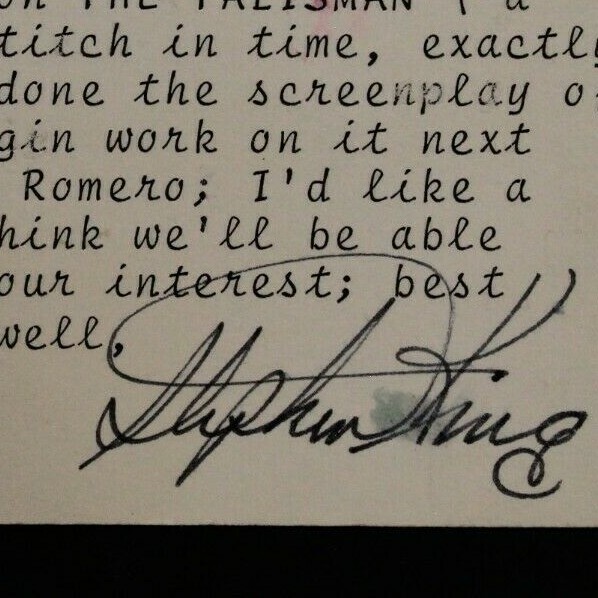 on THE TALISMAN ( a
titch in time, exactly
done the screenplay o
gin work on it next
Romero; I'd like a
hink we'll be able
our interest; best
well,
Stephen King